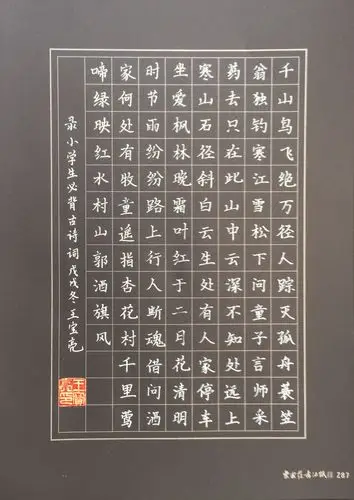 千山鸟飞绝万径人踪灭孤舟蓑笠
翁独钓寒江雪松下问童子言师采
药去只在此山中云深不知处远上
寒山石径斜白云生处有人家停车
坐爱枫林晚霜叶红于二月花清明
时节雨纷纷路上行人断魂借问酒
家何处有牧童遥指杏花村千里莺
啼绿映红水村山郭酒旗风
录小学生必背古诗词戊戌冬王宝亮
287